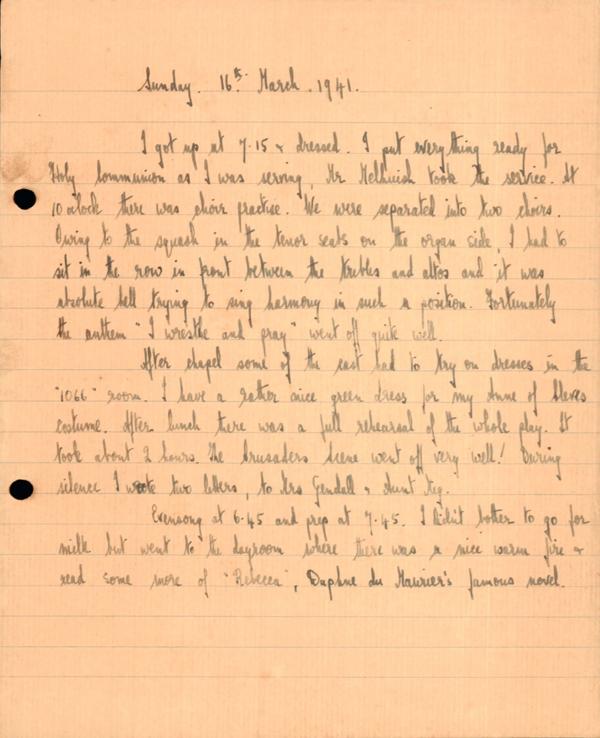 Sunday. 16th. March. 1941.
I got up at 7.15 & dressed. I put everything ready for
Holy Communion as I was serving, Mr Melhuish took the service. At
10 o'clock there was choir practise. We were separated into two choirs.
Owing to the squash in the tenor seats on the organ side, I had to
sit in the row in front between the trebles and altos and it was
absolute hell trying to sing harmony in such a position. Fortunately
the anthem "I wrestle and pray" went off quite well.
After chapel some of the cast had to try on dresses in the
"1066" room. I have a rather nice green dress for my Anne of Cleves
costume. After lunch there was a full rehearsal of the whole play. It
took about 2 hours. The Crusaders scene went off very well! During
silence I wrote two letters, to Mrs Gendall & Aunt Reg.
Evensong at 6.45 and prep at 7.45. I didn't bother to go for
milk but went to the dayroom where there was a nice warm fire &
read some more of "Rebecca", Daphne du Maurier's famous novel.